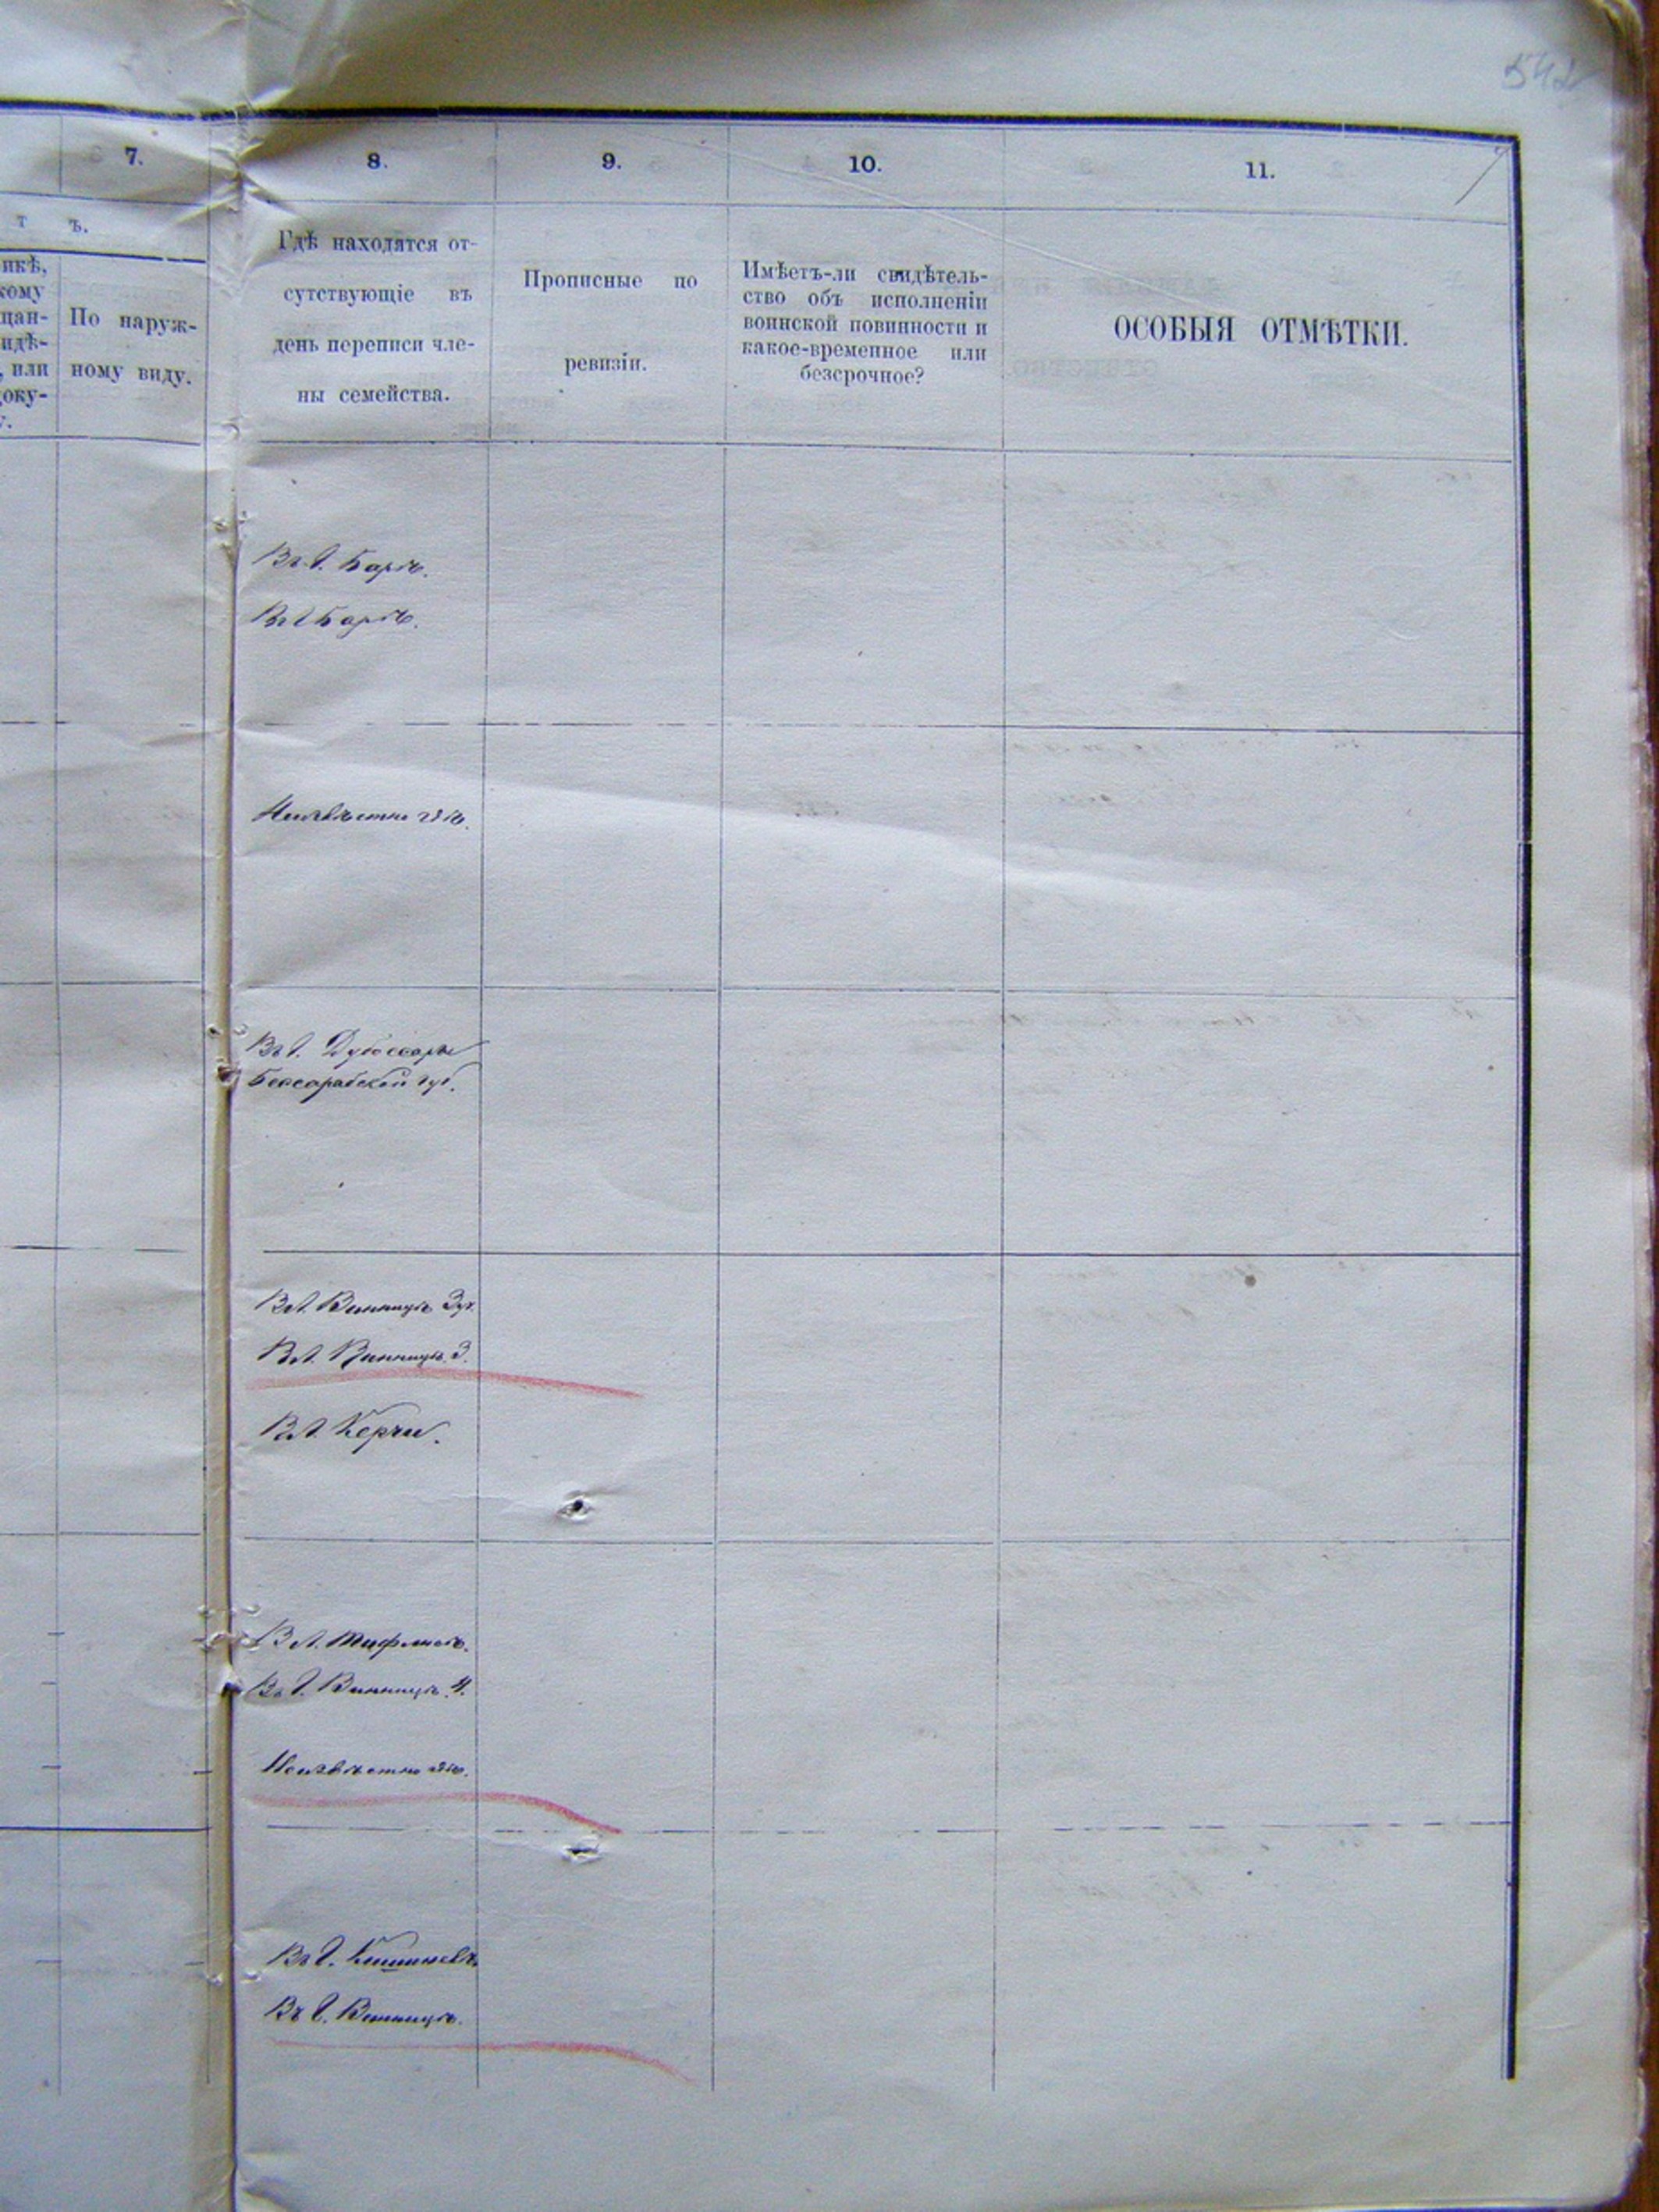 542
7.
8.
9.
10.
11.
т ъ.
икѣ,
кому
цан-
идѣ-
, или
оку-
у.
По наруж-
ному виду.
Гдѣ находятся от-
сутствующіе въ
день переписи чле-
ны семейства.
Прописные по
ревизіи.
Имѣетъ-ли свидѣтель-
ство объ исполненіи
воинской повинности и
какое-временное или
безсрочное?
ОСОБЫЯ ОТМѢТКИ.
Въ г. Барѣ.
Въ г Барѣ.
Неизвѣстно гдѣ.
Въ г. Дубоссары
Бессарабской губ.
Въ г. Винницѣ
Въ г. Винницѣ. З.
Въ г. Керчи.
Въ г. Тифлисѣ.
Въ г. Винницѣ. Н.
Неизвѣстно гдѣ.
Въ г. Кишиневѣ.
Въ г. Винницѣ.